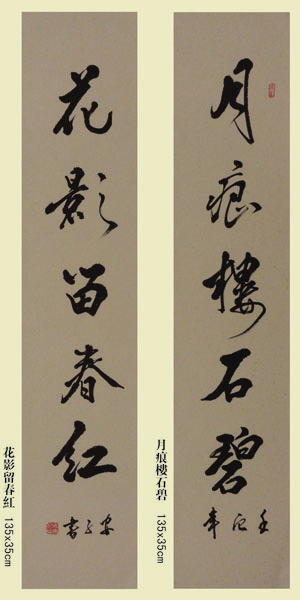 月痕樓石碧
月痕樓石碧 135x35cm
花影留春红
花影留春紅 135x35cm